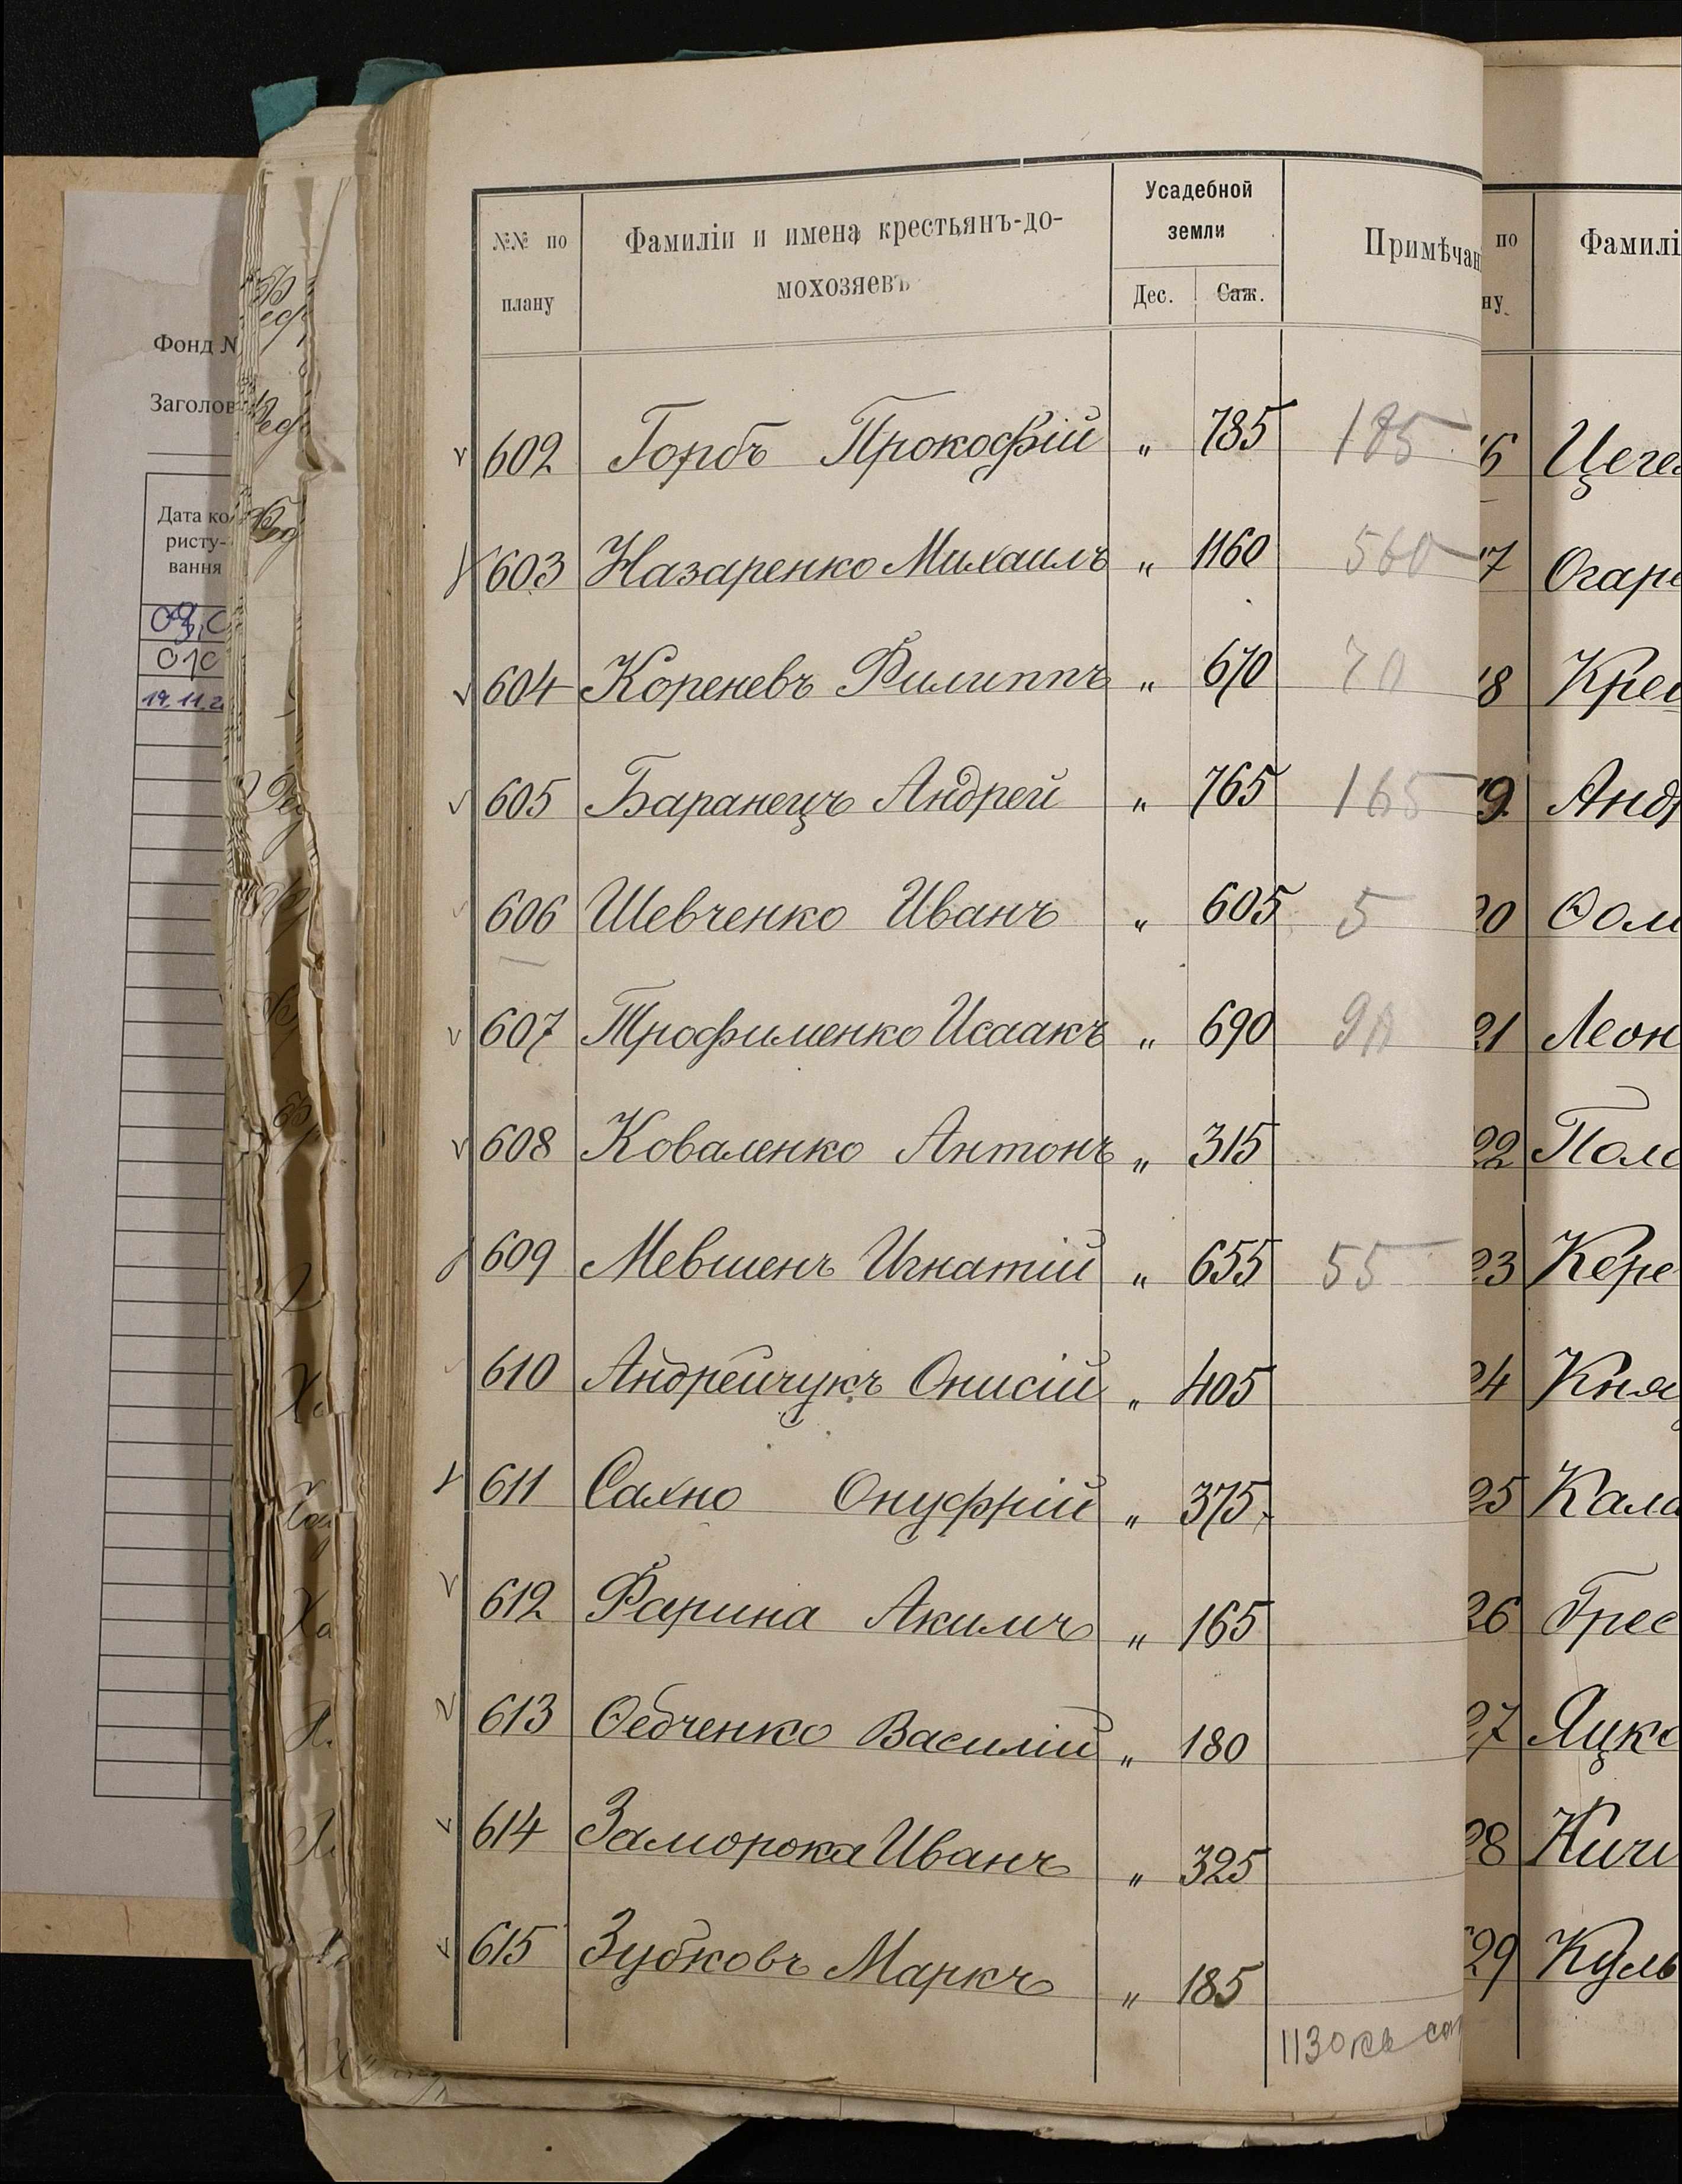 №№ по плану
Фамиліи и имена крестьянъ-до-
мохозяевъ
Усадебной
земли
Дес. Саж.
Примѣчан
602 Горбъ Прокофій „ 785 185
603 Назаренко Михаилъ „ 1160 560
604 Кореневъ Филиппъ „ 670 70
605 Баранецъ Андрей „ 765 165
606 Шевченко Иванъ „ 605 5
607 Трофименко Исаакъ „ 690 90
608 Коваленко Антонъ „ 315
609 Мевшенъ Игнатій „ 655 55
610 Андрейчукъ Онисій „ 405
611 Сахно Онуфрій „ 375
612 Фарина Акимъ „ 165
613 Ѳедченко Василій „ 180
614 Заморока Иванъ „ 325
615 Зубковъ Маркъ „ 185
1130 кв саж
Фонд №
Заголов
Дата ко
ристу-
вання
19.11.2
по
ну
Фамилі
16 Цеге
17 Огар
18 Кре
19 Анд
20 Ѳом
21 Леон
22 Поло
23 Кере
24 Кня
25 Кала
26 Грес
27 Яцко
28 Кичи
29 Куль